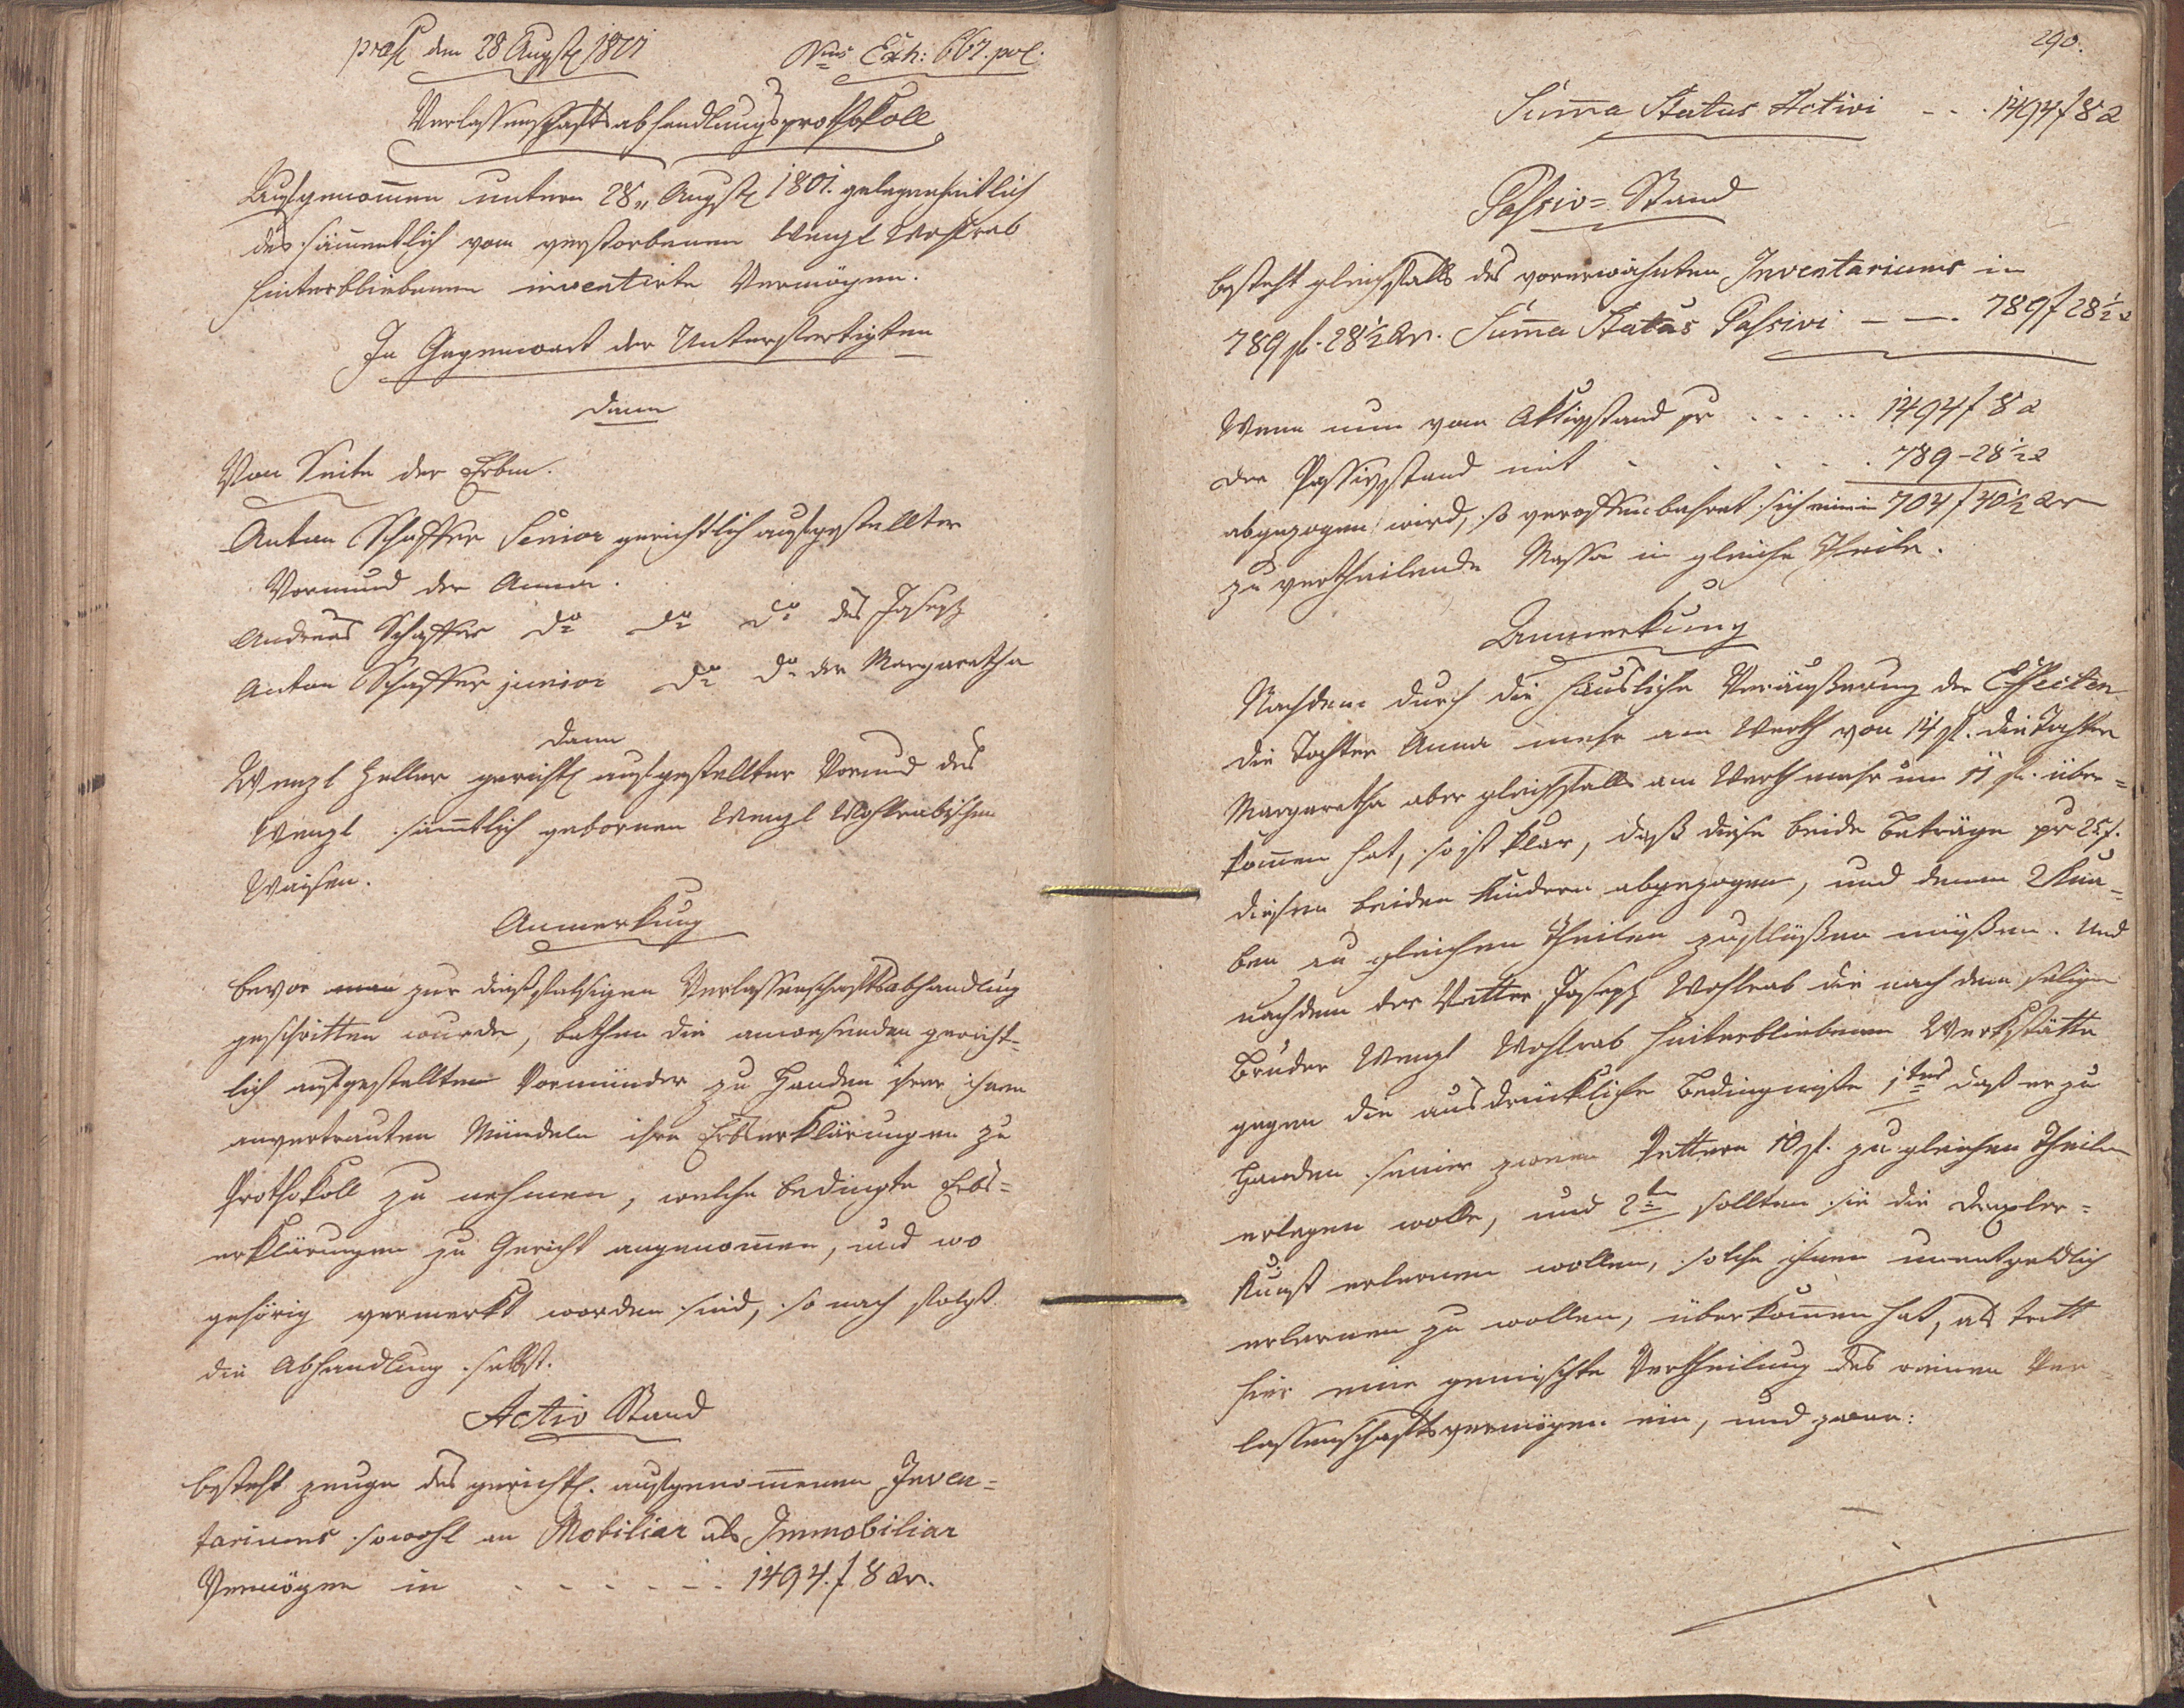 praes den 28 August 1801 Nrus Exh: 667. pol.
Verlassenschaftsabhandlungsprothokoll
Aufgenom̅en unterm 28„ August 1801. gelegenheitlich
des sämmentlich vom verstorbenen Wenzl Wohlrab
hinterbliebenen inventirte Vermögen.
In Gegenwart der Unterfertigten
dann
Von Seite der Erben.
Anton Schaffer Senior gerichtlich aufgestellter
Vormund der Anna.
Andreas Schaffer do do do des Joseph
Anton Schaffer junior do do der Margaretha
dann
Wenzl Heller gerichtl aufgestellter Vormund des
Wenzl sämtlich gebornen Wenzl Wohlrabischen
Waisen.
Anmerkung
Bevor man zur dießfalsigen Verlassenschaftsabhandlung
geschritten wurde, bathen die anwesenden gericht-
lich aufgestellten Vormünder zu Handen ihrer ihnen
anvertrauten Mündeln ihre Erbserklärungen zu
Prothokoll zu nehmen, welche bedingte Erbs=
erklärungen zu Gericht angenom̅en, und wo
gehörig vermerkt worden sind, so nach folgt
die Abhandlung selbst.
Activ Stand
besteht zeuge des gerichtl. aufgenom̅enen Inven=
tariums sowohl an Mobiliar als Immobiliar
Vermögen in . - - - - - . 1494. f 8 xr.
290.
Sum̅a Status Activi - - . 1494 f 8 x
Passiv = Stand
besteht gleichfalls des vorerwähnten Inventariums in
789 fl. 28½ xr. Sum̅a Status Passivi - - . 789 f 28½ x
Wenn nun vom Aktivstand pr . . . . . 1494 f 8 x
der Passivstand mit . . . . . 789 - 28½ x
abgezogen wird, so veroffenbahret sich eine in 704 f 40½ xr
zu vertheilende Massa in gleiche Theile.
Anmerkung
Nachdem durch die häusliche Veräußerung der Effecten
die Tochter Anna mehr am Werth von 14 fl. die Tochter
Margaretha aber gleichfalls am Werth mehr um 11 fl. über=
kom̅en hat, so ist klar, daß diese beide Beträge pr 25 f.
diesen beiden Kindern abgezogen, und denen 2 Kna=
ben zu gleichen Theilen zuflüßen müßen. Und
nachdem der Vetter Joseph Wohlrab die nach dem seligen
Bruder Wenzl Wohlrab hinterbliebenen Werkstätte
gegen die ausdrückliche Bedingniße 1tens daß er zu
Handen seiner zween Vettern 10 fl. zu gleichen Theilen
erlegen wolle, und 2tn sollten sie die Drexler=
kunst erlernen wollen, solche ihnen unentgeldlich
erlernen zu wollen, überkom̅en hat, als tritt
hier eine gemischte Vertheilung des reinen Ver=
lassenschaftsvermögen ein, und zwar: